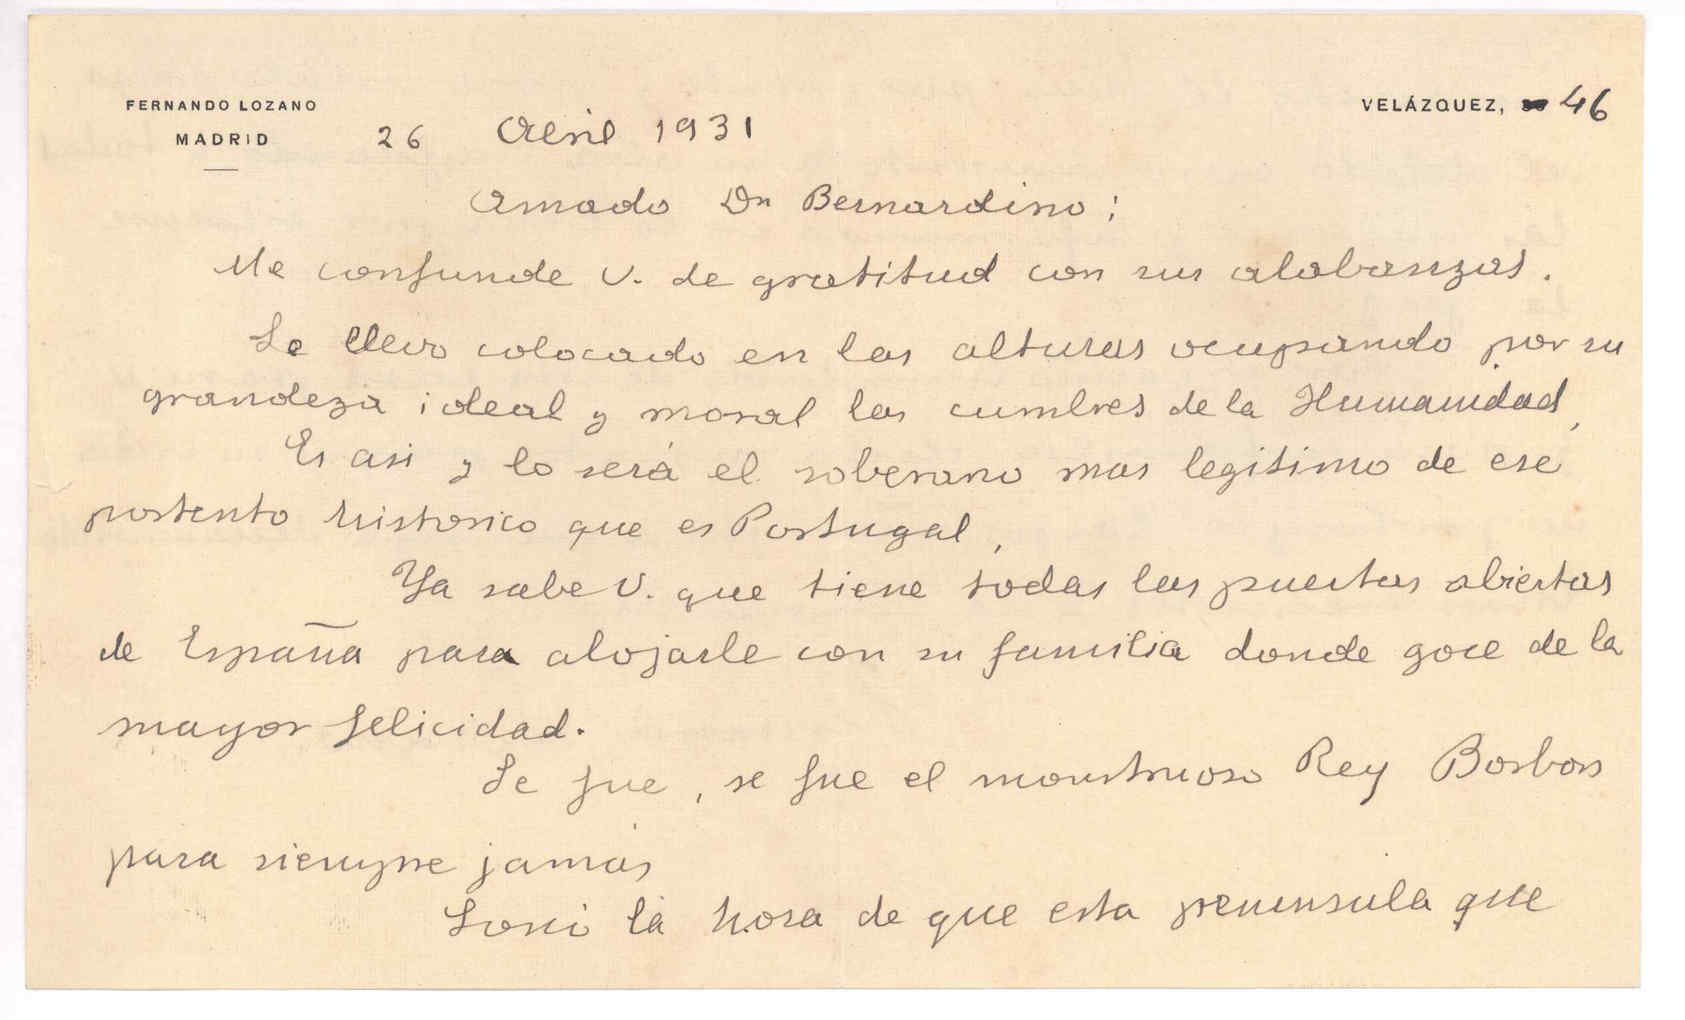 FERNANDO LOZANO
MADRID
VELÁZQUEZ, 46
26 Abril 1931
Amado Dn Bernardino:
Me confunde V. de gratitud con sus alabanzas.
Le llevo colocado en las alturas ocupando por su
grandeza ideal y moral las cumbres de la Humanidad,
Es asi y lo será el soberano mas legitimo de ese
portento historico que es Portugal,
Ya sabe V. que tiene todas las puertas abiertas
de España para alojarle con su familia donde goce de la
mayor felicidad.
Se fue, se fue el monstruoso Rey Borbon
para siempre jamás
Sonó la hora de que esta peninsula que